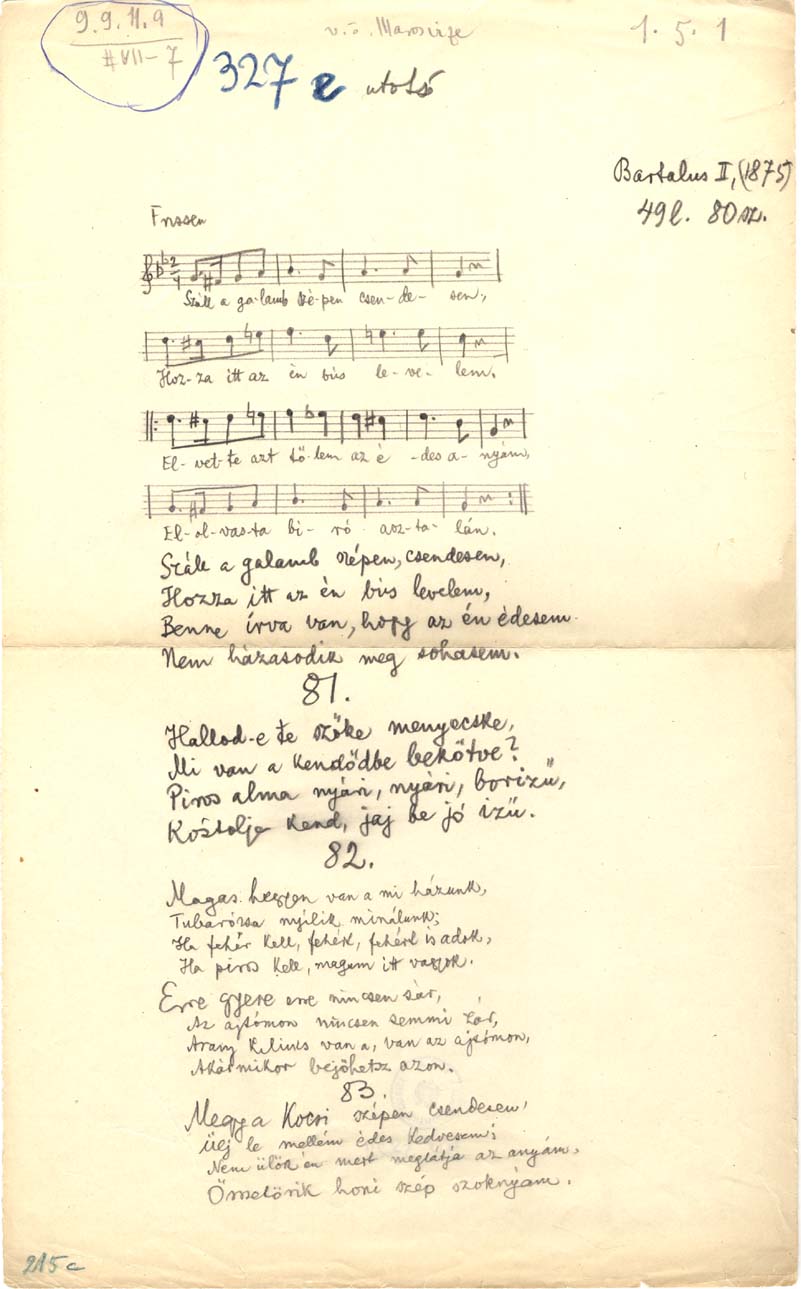 9. 9. 11. 9
# VII – 7
v.ö. Marosvize
1. 5. 1
327 e utolsó
Bartalus II, (1875)
49 l. 80 sz.
Frissen
2/4
Száll a ga-lamb szé-pen csen-de- sen,
Hoz-za itt az èn bús le-ve-lem.
El-vet-te azt tő-lem az è -des a-nyám,
El-ol-vas-ta bi-ró asz-ta-lán.
Száll a galamb szépen, csendesen,
Hozza itt az èn bús levelem,
Benne írva van, hogy az én édesem
Nem házasodik meg sohasem.
81.
Hallod-e te szőke menyecske,
Mi van a kendődbe bekötve?
Piros alma nyári, nyári, borizű,
Kóstolja kend, jaj be jó izű.
82.
Magas hegyen van a mi házunk,
Tubarózsa nyílik minálunk;
Ha fehér kell, fehért, fehért is adok,
Ha piros kell, magam itt vagyok.
Erre gyere erre nincsen sár,
Az ajtómon nincsen semmi zár,
Arany kilincs van a, van az ajtómon,
Akármikor bejöhetsz azon.
83.
Megy a kocsi szépen csendesen,
Ülj le mellém èdes kedvesem;
Nem ülök èn mert meglátja az anyám,
Összetörik honi szép szoknyám.
215 c